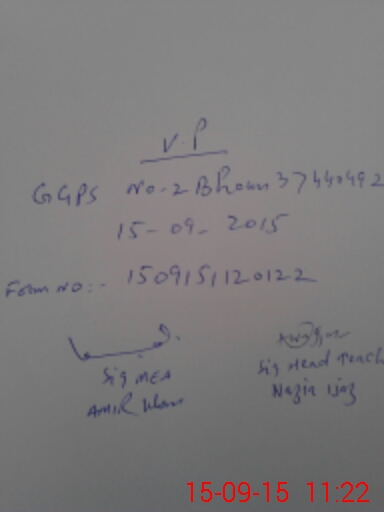 V.P
GGPS No-2 Bhoun 37440492
15-09-2015
Form No:- 1509151120122
Sig MEA
Sig Head Teach
Amir Khan
Nazia Ijaz
15-09-15 11:22